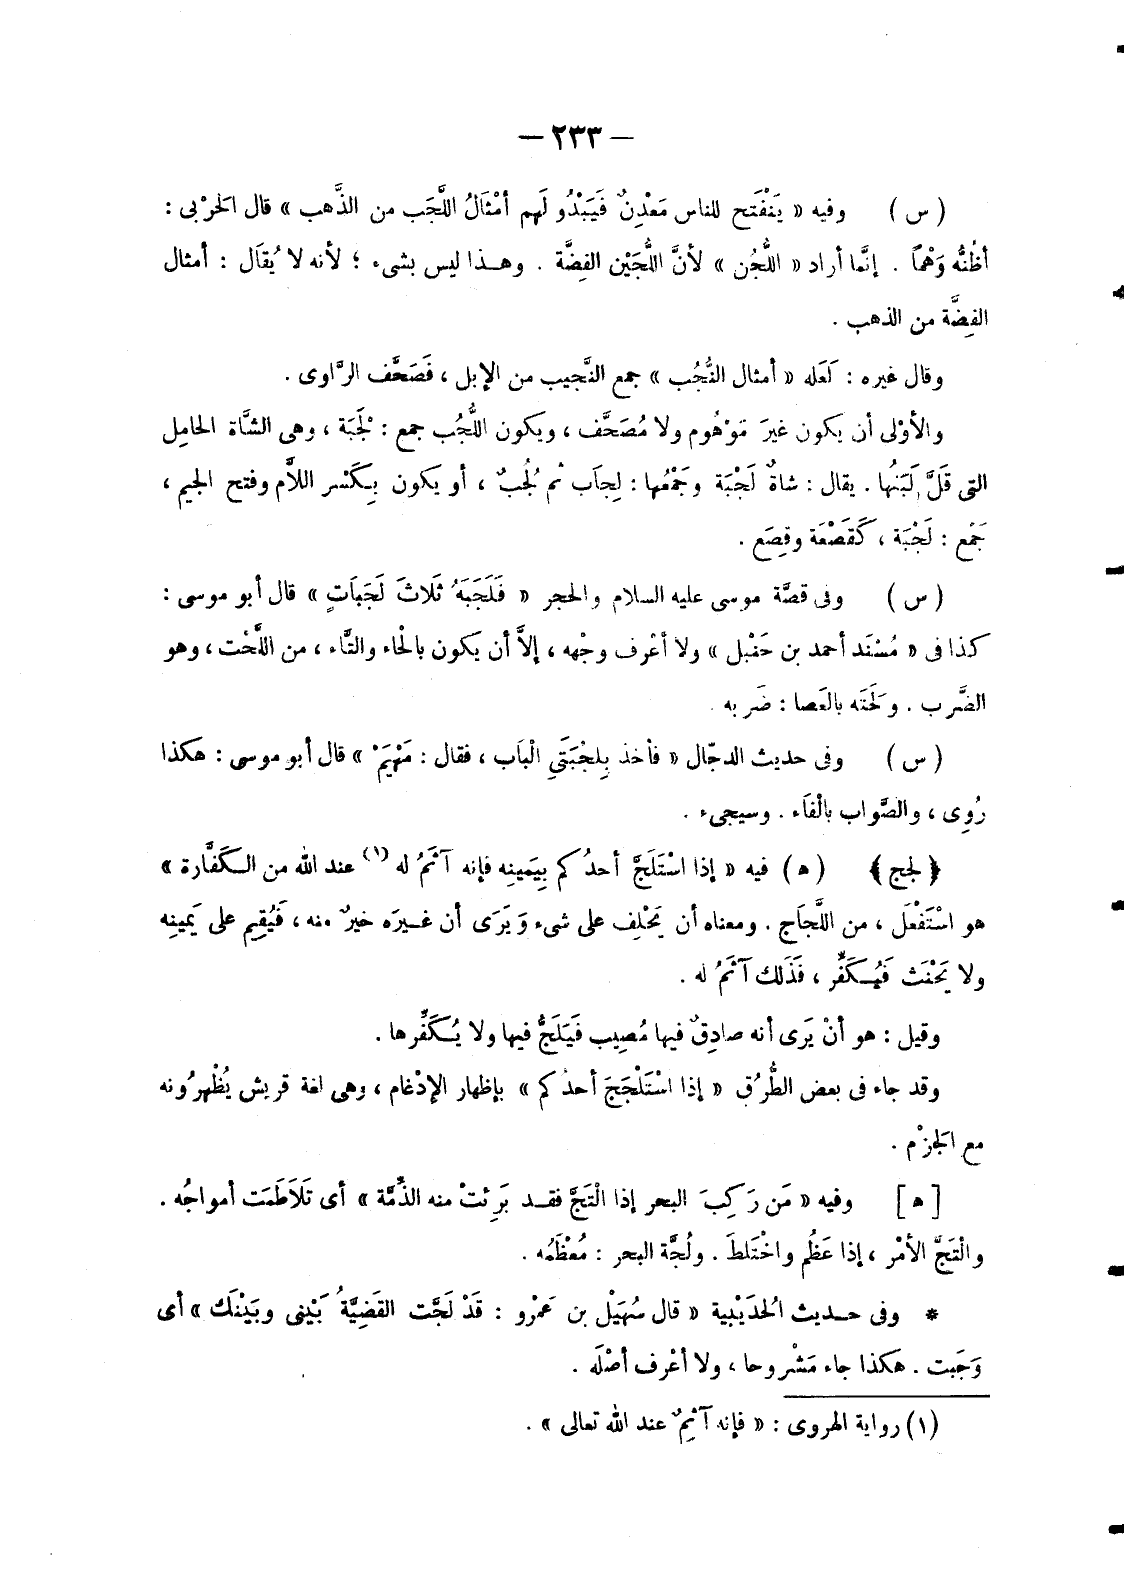 — ٢٣٣ —
( س ) وفيه « يَنْفَتح للناس مَعْدِنٌ فَيَبْدُو لَهم أمْثَالُ اللَّجَب من الذَّهب » قال الحَرْبى :
أظُنُّه وَهْماً . إنَّما أراد « اللُّجُن » لأنَّ اللُّجَيْن الفِضَّة . وهـذا ليس بشىء ؛ لأنه لا يُقَال : أمثال
الفِضَّة من الذهب .
وقال غيره : لَعَله « أمثال النُّجُب » جمع النَّجيب من الإبل ، فَصَحَّف الرَّاوى .
والأوْلى أن يكون غيرَ مَوْهُوم ولا مُصَحَّف ، ويكون اللُّجُب جمع : لَجْبَة ، وهى الشَّاة الحامِل
التى قَلَّ لَبَنُها . يقال : شاةٌ لَجْبَة وجَمْعُها : لِجَاب ثم لُجُبٌ ، أو يكون بِكَسْر اللاَّم وفتح الجيم ،
جَمْع : لَجْبَة ، كَقَصْعَة وقِصَع .
( س ) وفى قصَّة موسى عليه السلام والحجر « فَلَجَبَهُ ثَلاثَ لَجَبَاتٍ » قال أبو موسى :
كذا فى « مُسْنَد أحمد بن حَنْبل » ولا أعْرف وجْهه ، إلاَّ أن يكون بالْحاء والتَّاء ، من اللَّحْت ، وهو
الضَّرب . ولَحَتَه بالعَصا : ضَربه .
( س ) وفى حديث الدجّال « فأخذ بِلَجْبَتَىِ الْبَاب ، فقال : مَهْيَمْ » قال أبو موسى : هكذا
رُوِى ، والصَّواب بالْفَاء . وسيجىء .
﴿ لجج ﴾ ( ه ) فيه « إذا اسْتَلَجَّ أحدُكم بِيَمينِه فإنه آثَمُ له (١) عند الله من الـكَفَّارة »
هو اسْتَفْعَل ، من اللَّجَاج . ومعناه أن يَحْلِف على شىء ويَرَى أن غـيرَه خيرٌ منه ، فَيُقِيم على يَمينِه
ولا يَحْنَث فَيُـكَفِّر ، فَذَلك آثَمُ له .
وقيل : هو أنْ يَرَى أنه صادِقٌ فيها مُصِيب فَيَلَجُّ فيها ولا يُـكَفِّرها .
وقد جاء فى بعض الطُّرُق « إذا اسْتَلْجَجَ أحدُكم » بإظهار الإدْغام ، وهى لغة قريش يُظْهِرُونه
مع الجَزْم .
[ ه ] وفيه « مَن رَكِبَ البحر إذا الْتَجَّ فقـد بَرِئتْ منه الذِّمَّة » أى تَلاَطَمَت أمواجُه .
والْتَجَّ الأمْر ، إذا عَظُم واخْتَلطَ . ولُجَّة البحر : مُعْظَمُه .
* وفى حـديث الحُدَيْبية « قال سُهَيْل بن عَمْرو : قَدْ لَجَّت القَضِيَّةُ بَيْنِى وبَيْنَك » أى
وَجَبت . هكذا جاء مَشْروحا ، ولا أعْرف أصْلَه .
(١) رواية الهروى : « فإنه آثِمٌ عند الله تعالى » .